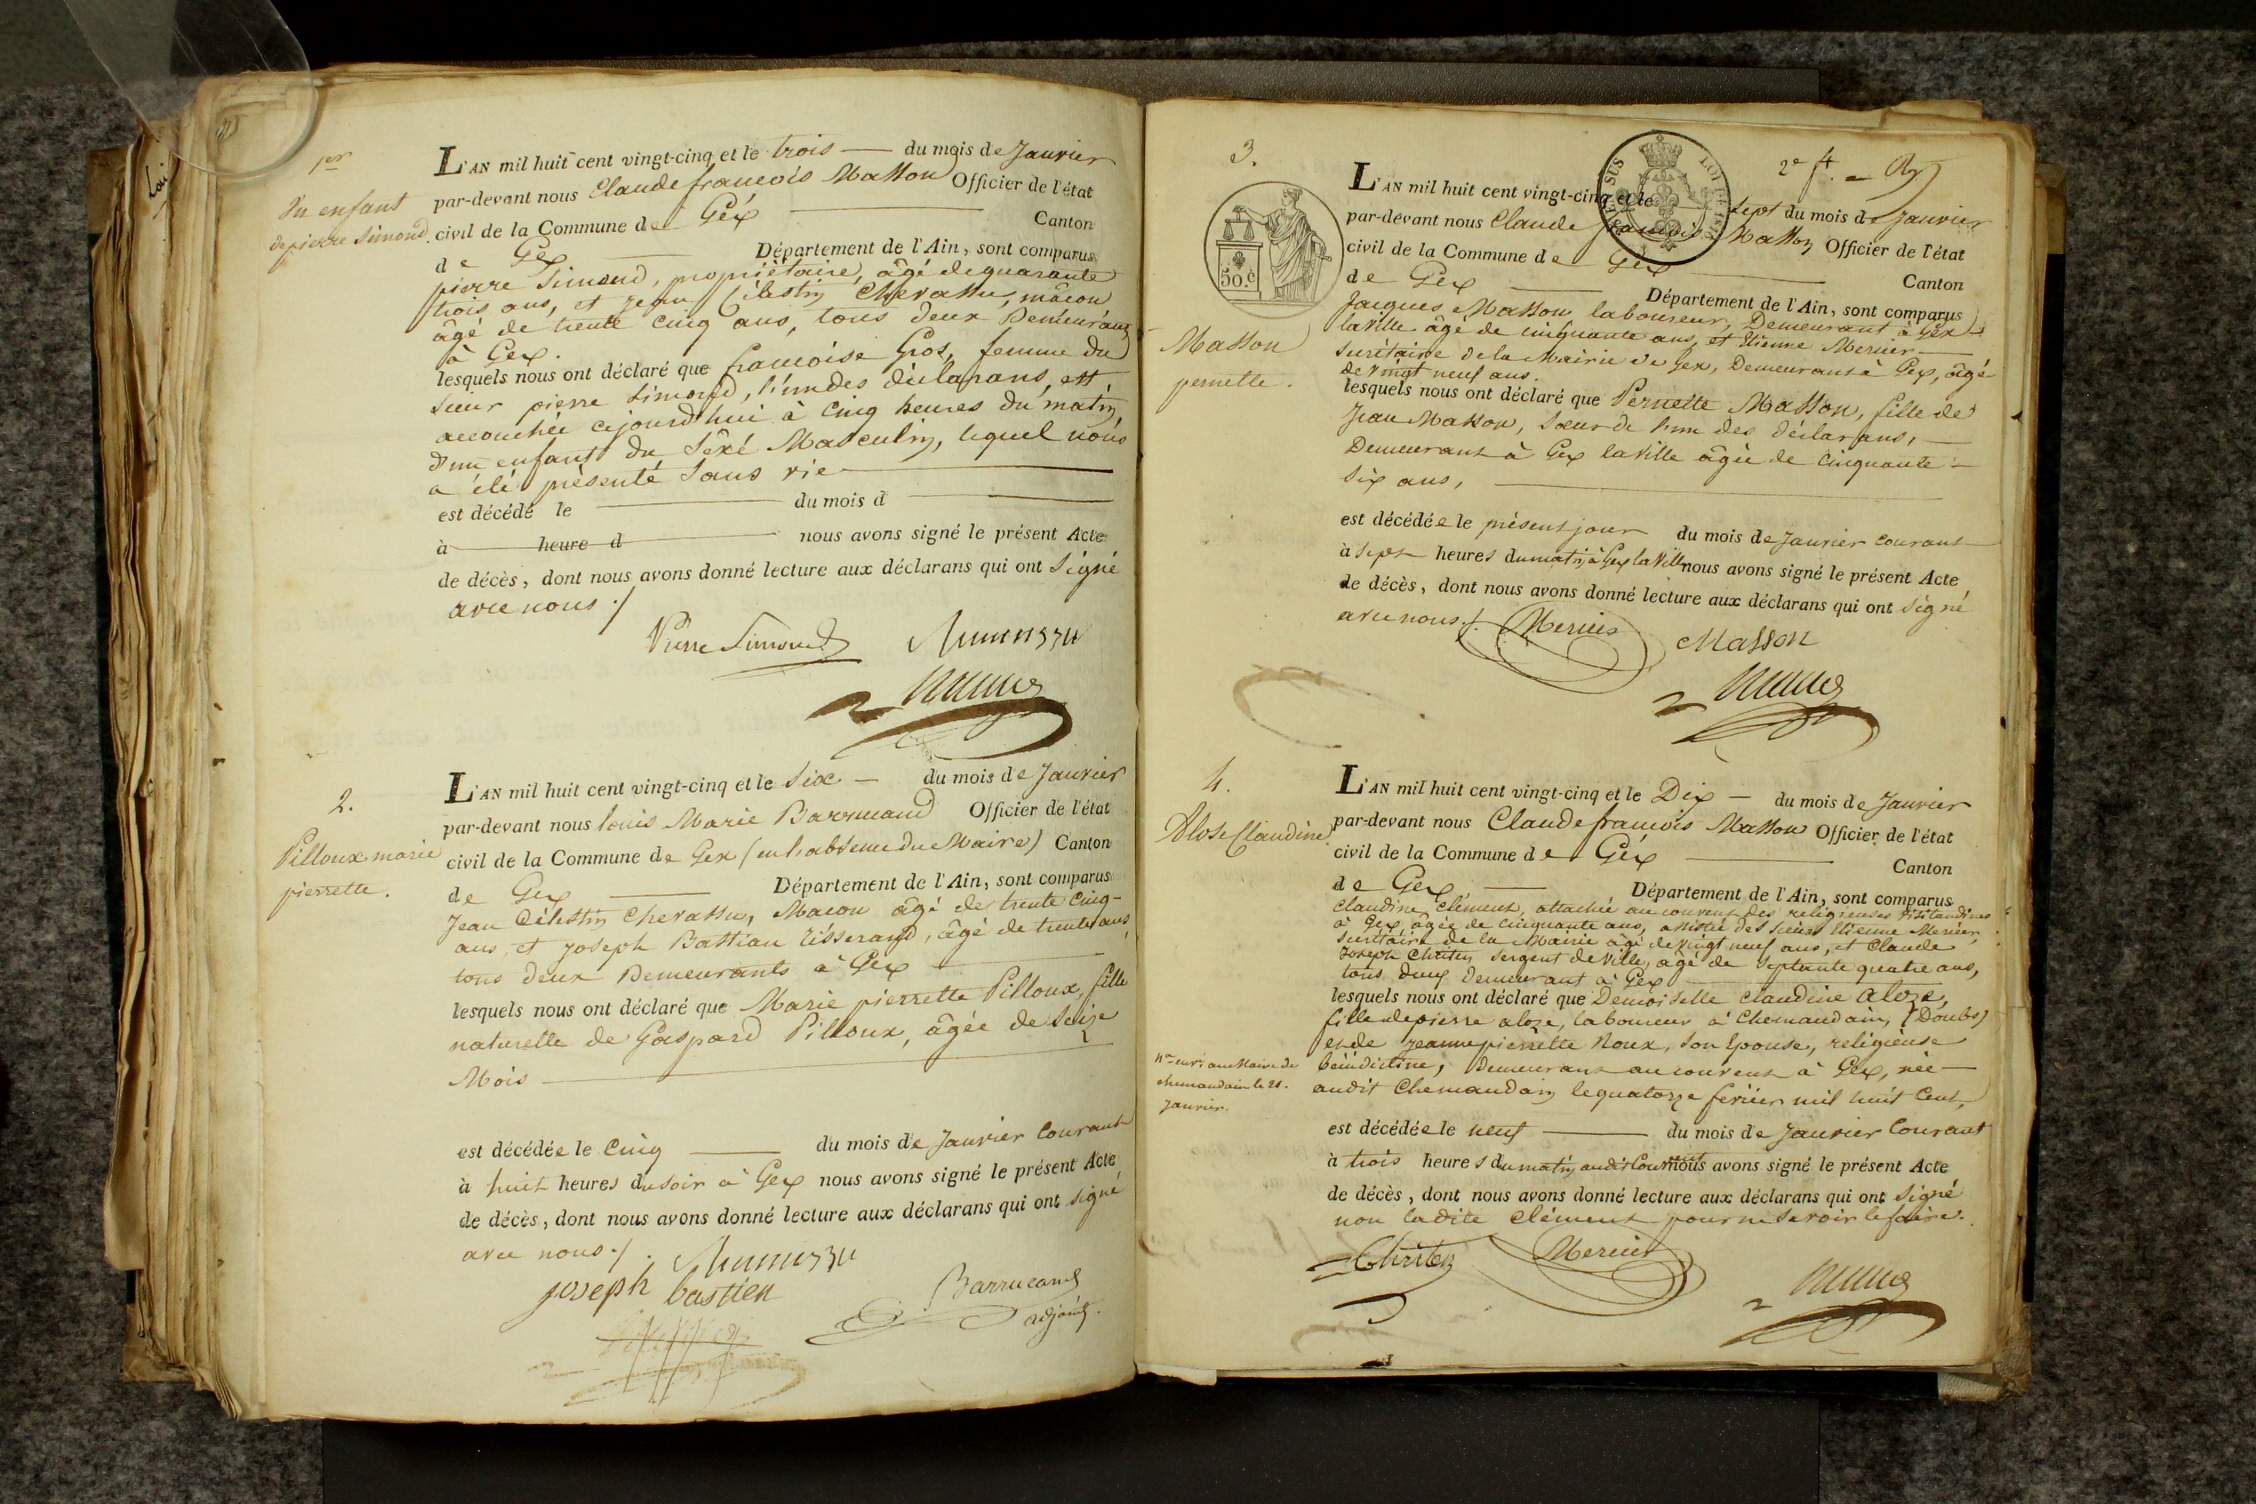 1er
Un enfant
de pierre Simond.
L'AN mil huit cent vingt-cinq et le trois — du mois de Janvier
par-devant nous Claude françois Masson Officier de l'état
civil de la Commune de Géx — Canton
de Gex — Département de l'Ain, sont comparus
pierre Simond, propriètaire, âgé de quarante
trois ans, et jean Célestin Chevassu, mâcon
âgé de trente cinq ans, tous deux Demeurans
à Gex.
lesquels nous ont déclaré que françoise Gros, femme du
sieur pierre Simond, l'un des déclarans, est
accouchée cejourd'hui à cinq heures du matin,
d'un enfant du séxé Masculin, lequel nous
a été présenté sans vie —
est décédé le — du mois d —
à — heure d — nous avons signé le présent Acte
de décès, dont nous avons donné lecture aux déclarans qui ont signé
avec nous ./
Pierre Simond
2.
Pilloux marie
pierrette.
L'AN mil huit cent vingt-cinq et le Six — du mois de Janvier
par-devant nous louis Marie Barrucand Officier de l'état
civil de la Commune de Gex (en l'absence du Maire) Canton
de Gex — Département de l'Ain, sont comparus
Jean Célestin Chevassu, Macon âgé de trente cinq-
ans, et Joseph Bastian tisserand, âgé de trente ans,
tous deux Demeurants à Gex —
lesquels nous ont déclaré que Marie pierrette Pilloux, fille
naturelle de Gaspard Pilloux, âgée de seize
Mois —
est décédée le cinq — du mois de Janvier courant
à huit heures du soir à Gex nous avons signé le présent Acte
de décès, dont nous avons donné lecture aux déclarans qui ont signé
avec nous ./.
joseph bastien
Barrucand
adjoint.
3.
Masson
pernette.
50.c
2e ft.
L'AN mil huit cent vingt-cinq et le sept du mois de Janvier
par-devant nous Claude françois Masson Officier de l'état
civil de la Commune de Gex — Canton
de Gex — Département de l'Ain, sont comparus
Jacques Masson laboureur, Demeurant à Gex
laville âgé de cinquante ans, et Etienne Mercier —
secrétaire de la Mairie de Gex, Demeurant à Gex, âgé
de vingt neuf ans.
lesquels nous ont déclaré que Pernette Masson, fille de
Jean Masson, Soeur de l'un des déclarans, —
Demeurant à Gex laville âgée de cinquante —
six ans, —
est décédée le présent jour du mois de Janvier courant
à sept heures du matin, à Gex laville nous avons signé le présent Acte
de décès, dont nous avons donné lecture aux déclarans qui ont signé
avec nous ./.
Mercier
Masson
4.
Alose Claudine
L'AN mil huit cent vingt-cinq et le Dix — du mois de Janvier
par-devant nous Claude françois Masson Officier de l'état
civil de la Commune de Géx — Canton
de Gex — Département de l'Ain, sont comparus
Claudine Clément, attachée au couvent des religieuses Visitandines
à Gex, âgée de cinquante ans, assistée des sieurs Etienne Mercier,
secrétaire de la Mairie âgé de vingt neuf ans, et Claude
Joseph Christin sergent de ville, âgé de septante quatre ans,
tous deux demeurant à Gex —
lesquels nous ont déclaré que Demoiselle claudine aloze,
fille de pierre aloze, laboureur à Chemaudain, (Doubs)
et de jeanne pierrette Roux, son Epouse, religieuse
bénédictine, Demeurant au couvent à Gex, née —
audit Chemaudain le quatorze février mil huit Cent,
au Maire de
chemaudain le 21.
janvier.
est décédée le neuf — du mois de Janvier Courant
à trois heures du matin, audit Couvent nous avons signé le présent Acte
de décès, dont nous avons donné lecture aux déclarans qui ont signé
non ladite Clément pour ne savoir le faire.
Mercier